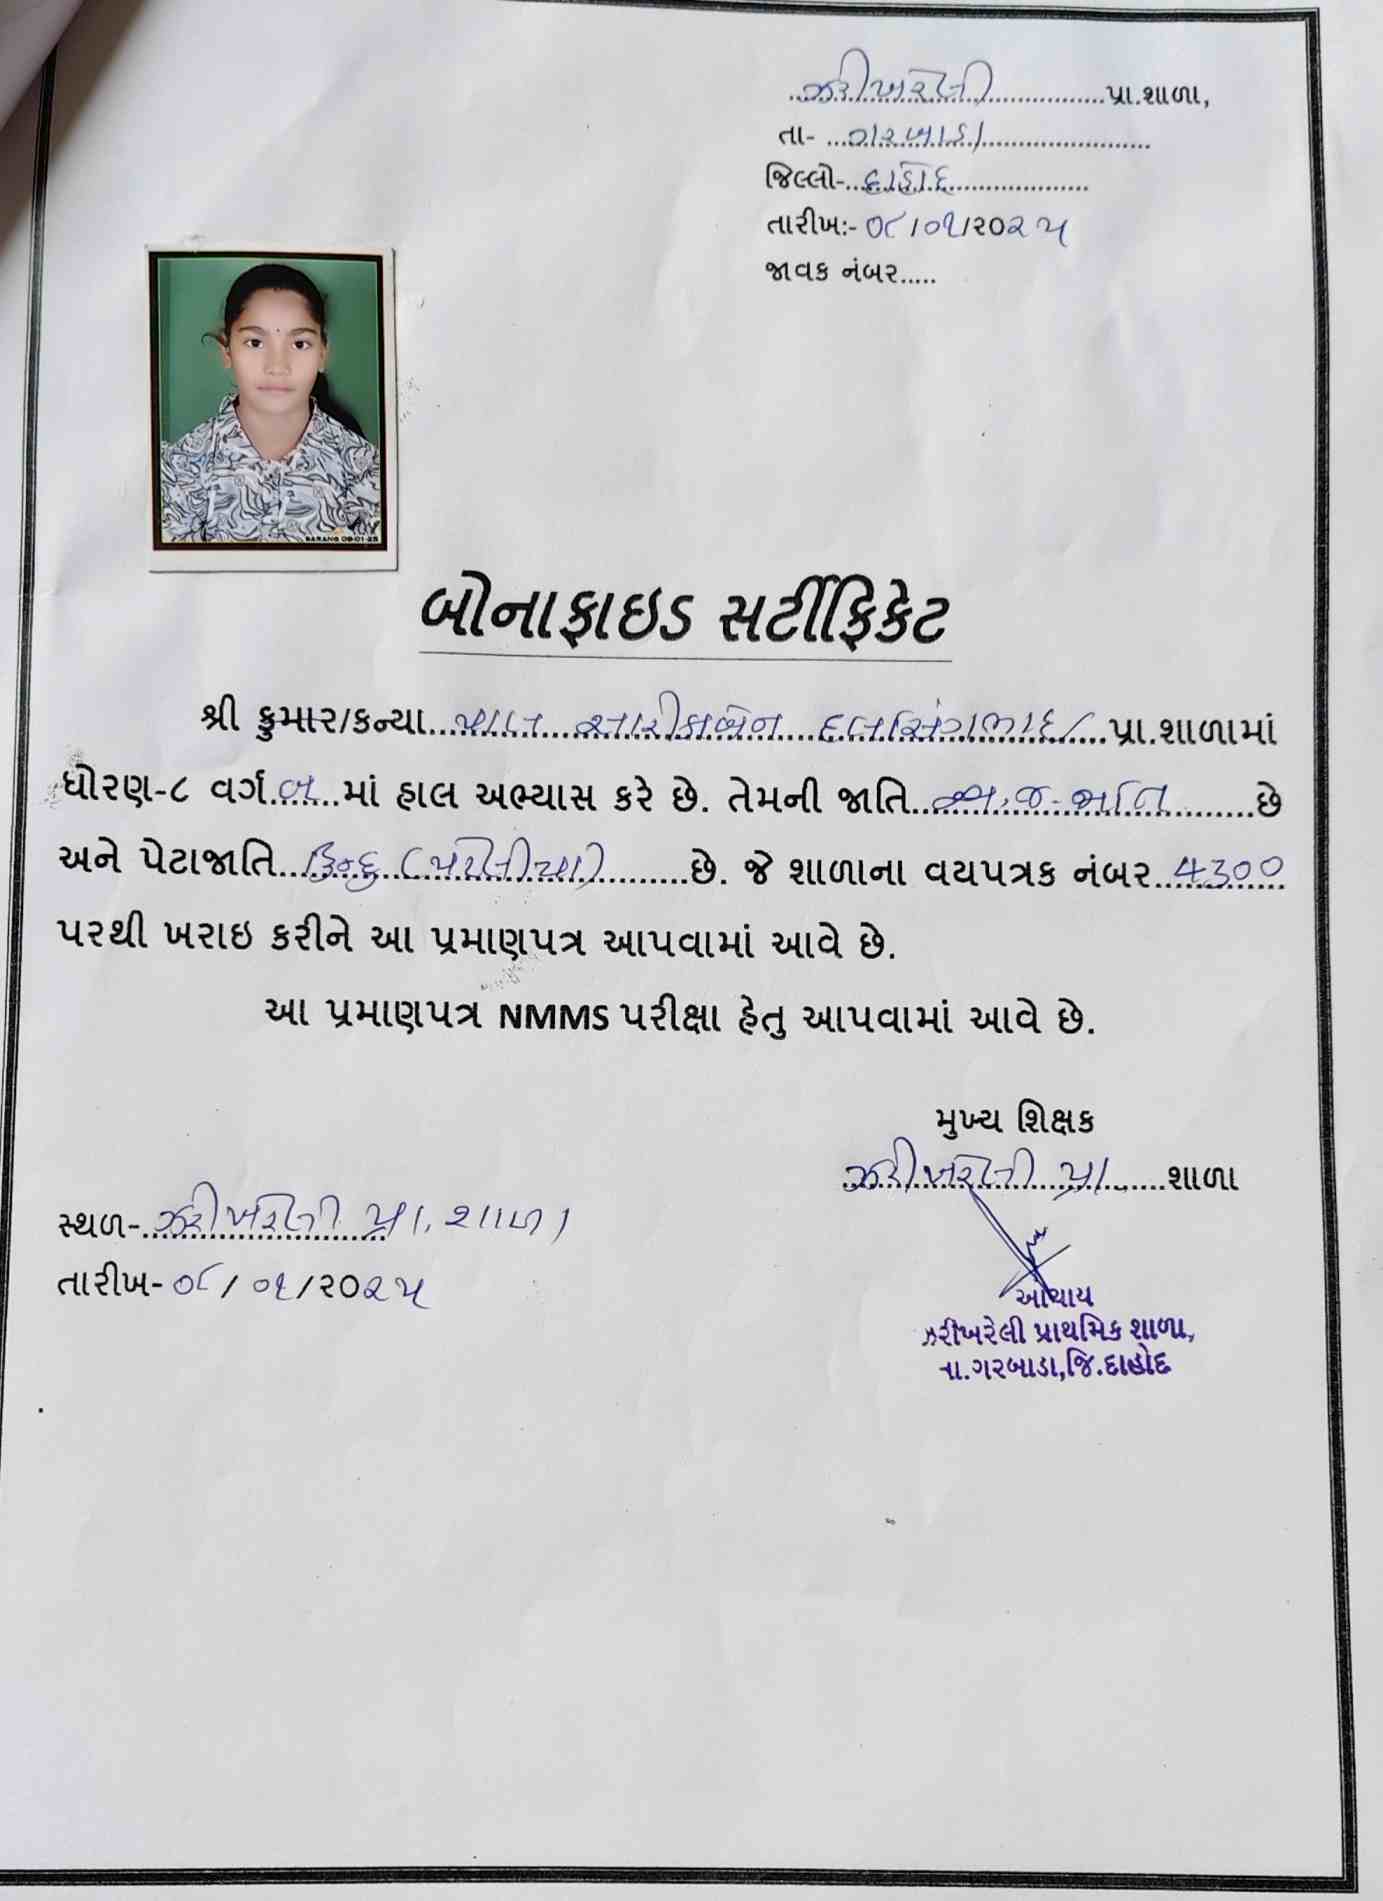 ઝરીખરેલી પ્રા.શાળા,
તા- ગરબાડા
જિલ્લો- દાહોદ
તારીખ:- ૦૮/૦૧/૨૦૨૫
જાવક નંબર.....
SARANG 08-01-25
બોનાફાઇડ સર્ટીફિકેટ
શ્રી કુમાર/કન્યા દલસિંગભાઇ પ્રા.શાળામાં
ધોરણ-૮ વર્ગ બ માં હાલ અભ્યાસ કરે છે. તેમની જાતિ છે
અને પેટાજાતિ હિન્દુ છે. જે શાળાના વયપત્રક નંબર 4300
પરથી ખરાઇ કરીને આ પ્રમાણપત્ર આપવામાં આવે છે.
આ પ્રમાણપત્ર NMMS પરીક્ષા હેતુ આપવામાં આવે છે.
મુખ્ય શિક્ષક
ઝરીખરેલી પ્રા. શાળા
સ્થળ- ઝરીખરેલી પ્રા. શાળા
તારીખ- ૦૮/૦૧/૨૦૨૫
આચાર્ય
ઝરીખરેલી પ્રાથમિક શાળા,
તા.ગરબાડા,જિ.દાહોદ